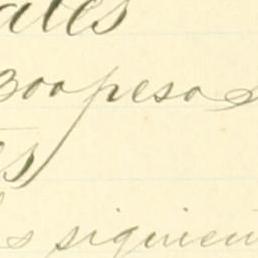 ales
300 pesos
s siguien